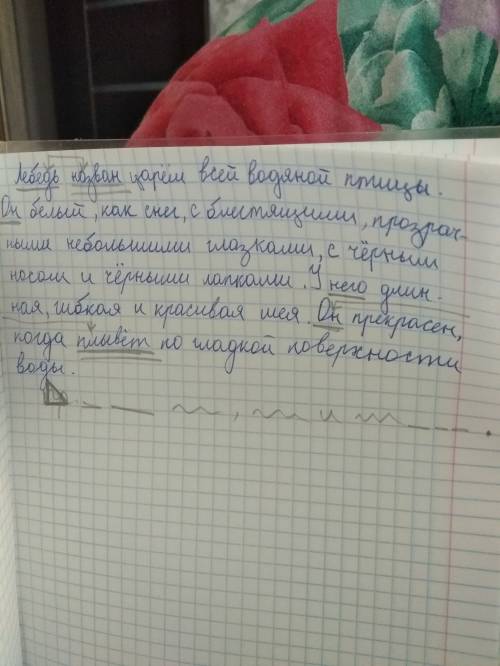 Лебедь назван царём всей водяной птицы.
Он белый, как снег, с блестящими, прозрач-
ными небольшими глазками, с чёрным
носом и чёрными лапками. У него длин-
ная, гибкая и красивая шея. Он прекрасен,
когда плывёт по гладкой поверхности
воды.